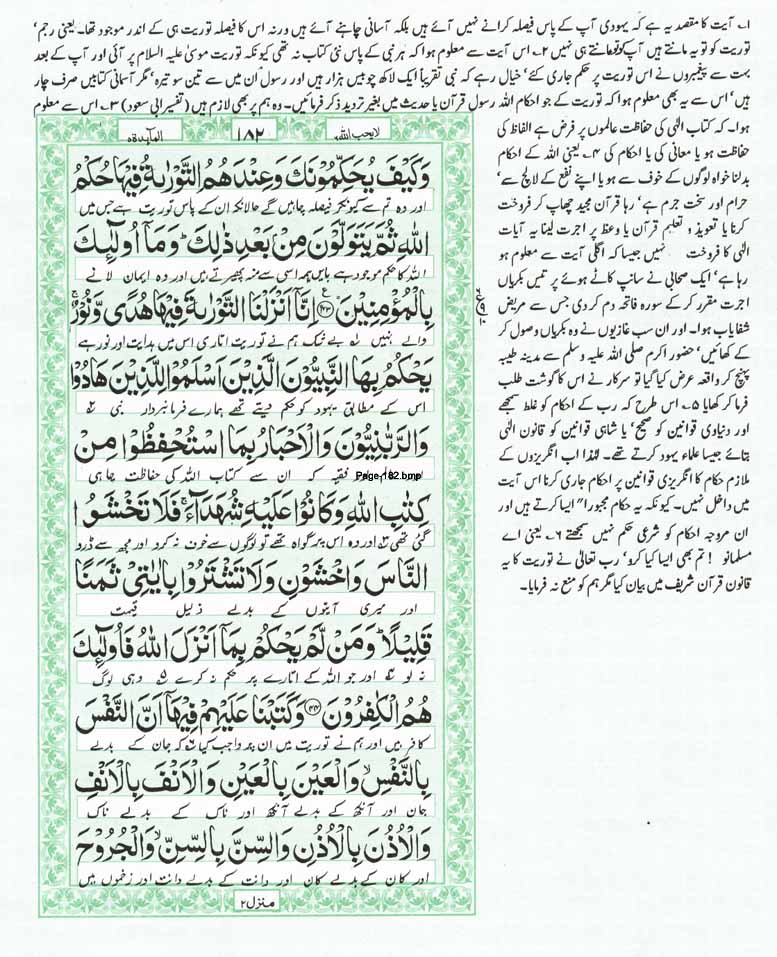 ۱۔ آیت کا مقصد یہ ہے کہ یہودی آپ کے پاس فیصلہ کرانے نہیں آئے ہیں بلکہ آسانی چاہنے آئے ہیں ورنہ اس کا فیصلہ توریت ہی کے اندر موجود تھا۔ یعنی رجم،
توریت کو تو یہ مانتے ہیں آپ کو تو مانتے ہی نہیں ۲۔ اس آیت سے معلوم ہوا کہ ہر نبی کے پاس نئی کتاب نہ تھی کیونکہ توریت موسیٰ علیہ السلام پر آئی اور آپ کے بعد
بہت سے پیغمبروں نے اس توریت پر حکم جاری کئے، خیال رہے کہ نبی تقریباً ایک لاکھ چوبیس ہزار ہیں اور رسول اُن میں سے تین سو تیرہ، مگر آسمانی کتابیں صرف چار
ہیں، اس سے یہ بھی معلوم ہوا کہ توریت کے جو احکام اللہ رسول قرآن یا حدیث میں بغیر تردید ذکر فرمائیں۔ وہ ہم پر بھی لازم ہیں (تفسیر ابی سعود) ۳۔ اس سے معلوم
ہوا۔ کہ کتاب الٰہی کی حفاظت عالموں پر فرض ہے الفاظ کی
حفاظت ہو یا معانی کی یا احکام کی ۴۔ یعنی اللہ کے احکام
بدلنا خواہ لوگوں کے خوف سے ہو یا اپنے نفع کے لالچ سے،
حرام اور سخت جرم ہے، رہا قرآن مجید چھاپ کر فروخت
کرنا یا تعویذ و تعلیم قرآن یا وعظ پر اجرت لینا یہ آیات
الٰہی کا فروخت نہیں جیسا کہ اگلی آیت سے معلوم ہو
رہا ہے، ایک صحابی نے سانپ کاٹے ہوئے پر تیس بکریاں
اجرت مقرر کر کے سورہ فاتحہ دم کر دی جس سے مریض
شفایاب ہوا۔ اور ان سب غازیوں نے وہ بکریاں وصول کر
کے کھائیں، حضور اکرم صلی اللہ علیہ وسلم سے مدینہ طیبہ
پہنچ کر واقعہ عرض کیا گیا تو سرکار نے اس کا گوشت طلب
فرما کر کھایا ۵۔ اس طرح کہ رب کے احکام کو غلط سمجھے
اور دنیاوی قوانین کو صحیح، یا شاہی قوانین کو قانون الٰہی
بتائے جیسا علماء یہود کرتے تھے۔ لہٰذا اب انگریزوں کے
ملازم حکام کا انگریزی قوانین پر احکام جاری کرنا اس آیت
میں داخل نہیں۔ کیونکہ یہ حکام مجبوراً ایسا کرتے ہیں اور
ان مروجہ احکام کو شرعی حکم نہیں سمجھتے ۶۔ یعنی اے
مسلمانو ! تم بھی ایسا کیا کرو، رب تعالیٰ نے توریت کا یہ
قانون قرآن شریف میں بیان کیا مگر ہم کو منع نہ فرمایا۔
لا یحب اللہ ۶ ۱۸۲ المآىدة ۵
وَكَيْفَ يُحَكِّمُوْنَكَ وَعِنْدَهُمُ التَّوْرٰىةُ فِيْهَا حُكْمُ
اور وہ تم سے کیونکر فیصلہ چاہیں گے حالانکہ ان کے پاس توریت ہے جس میں
اللّٰهِ ثُمَّ يَتَوَلَّوْنَ مِنْۢ بَعْدِ ذٰلِكَ ؕ وَمَاۤ اُولٰٓئِكَ
اللہ کا حکم موجود ہے بایں ہمہ اسی سے منہ پھیرتے ہیں اور وہ ایمان لانے
بِالْمُؤْمِنِيْنَ ﴿۴۳﴾ اِنَّاۤ اَنْزَلْنَا التَّوْرٰىةَ فِيْهَا هُدًى وَّنُوْرٌ ۚ
والے نہیں بے شک ہم نے توریت اتاری اس میں ہدایت اور نور ہے
يَحْكُمُ بِهَا النَّبِيُّوْنَ الَّذِيْنَ اَسْلَمُوْا لِلَّذِيْنَ هَادُوْا
اس کے مطابق یہود کو حکم دیتے تھے ہمارے فرمانبردار نبی
وَالرَّبّٰنِيُّوْنَ وَالْاَحْبَارُ بِمَا اسْتُحْفِظُوْا مِنْ
فقیہ کہ ان سے کتاب اللہ کی حفاظت چاہی
Page-182.bmp
كِتٰبِ اللّٰهِ وَكَانُوْا عَلَيْهِ شُهَدَآءَ ۚ فَلَا تَخْشَوُا
گئی تھی اور وہ اس پر گواہ تھے تو لوگوں سے خوف نہ کرو اور مجھ سے ڈرو
النَّاسَ وَاخْشَوْنِ وَلَا تَشْتَرُوْا بِاٰيٰتِيْ ثَمَنًا
اور میری آیتوں کے بدلے ذلیل قیمت
قَلِيْلًا ؕ وَمَنْ لَّمْ يَحْكُمْ بِمَاۤ اَنْزَلَ اللّٰهُ فَاُولٰٓئِكَ
نہ لو اور جو اللہ کے اتارے پر حکم نہ کرے وہی لوگ
هُمُ الْكٰفِرُوْنَ ﴿۴۴﴾ وَكَتَبْنَا عَلَيْهِمْ فِيْهَاۤ اَنَّ النَّفْسَ
کافر ہیں اور ہم نے توریت میں ان پر واجب کیا کہ جان کے بدلے
بِالنَّفْسِ ۙ وَالْعَيْنَ بِالْعَيْنِ وَالْاَنْفَ بِالْاَنْفِ
جان اور آنکھ کے بدلے آنکھ اور ناک کے بدلے ناک
وَالْاُذُنَ بِالْاُذُنِ وَالسِّنَّ بِالسِّنِّ ۙ وَالْجُرُوْحَ
اور کان کے بدلے کان اور دانت کے بدلے دانت اور زخموں میں
منزل ۲